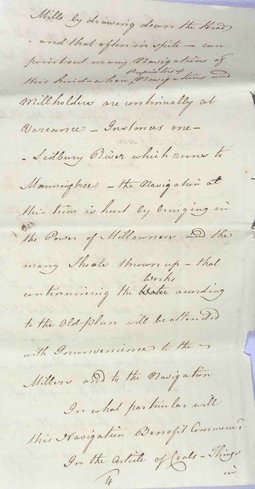 Mills by drawing down the Head
and that often in spite – can
point out many Navigations of
this kind where Proprietors Navigations and
Millholders are continually at
Variance – Instances one –
Sudbury River which runs to
Manningtree – the Navigation at
this time is hurt by bringing in
the Power of Millowners and the
many Shoals thrown up – that
continuing the Works according
to the Old plan will be attended
with Inconvenience to the
Millers and to the Navigation
In what particular will
this Navigation Benefit Commerce
In the Article of Coals – Things
in
4